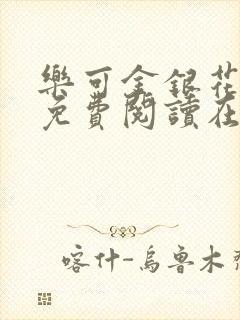 樂可金銀花
免費閱讀在
喀什-烏魯木齊